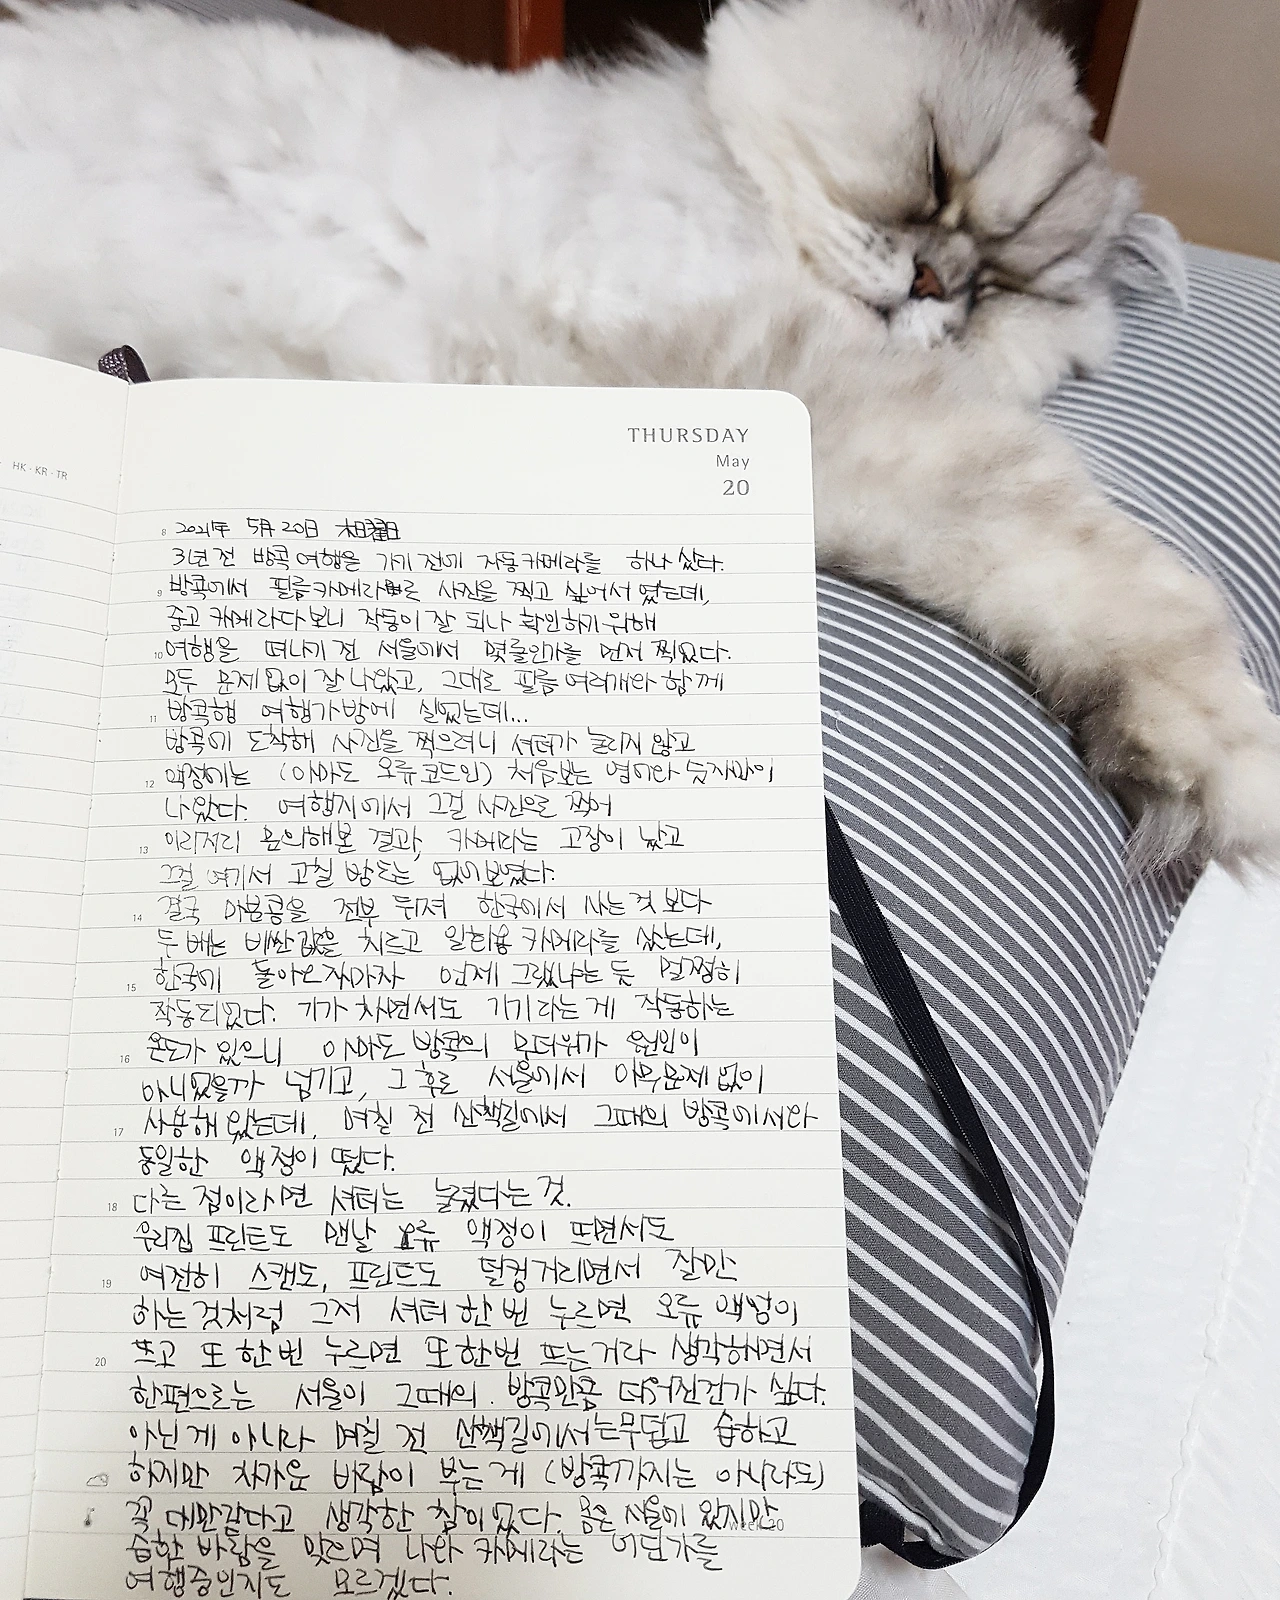 HK · KR · TR
THURSDAY
May
20
8 2021年 5月 20日 木曜日
3년 전 방콕 여행을 가기 전에 자동카메라를 하나 샀다.
9 방콕에서 필름카메라로 사진을 찍고 싶어서 였는데,
중고 카메라다 보니 작동이 잘 되나 확인하기 위해
10 여행을 떠나기 전 서울에서 몇롤인가를 먼저 찍었다.
모두 문제없이 잘 나왔고, 그대로 필름 여러개와 함께
11 방콕행 여행가방에 실었는데...
방콕에 도착해 사진을 찍으려니 셔터가 눌리지 않고
12 액정에는 (아마도 오류코드인) 처음보는 영어와 숫자만이
나왔다. 여행지에서 그걸 사진으로 찍어
13 이리저리 문의해본 결과, 카메라는 고장이 났고
그걸 여기서 고칠 방도는 없어보였다.
14 결국 마분콩을 전부 뒤져 한국에서 사는 것 보다
두 배는 비싼 값을 치르고 일회용 카메라를 샀는데,
15 한국에 돌아오자마자 언제 그랬냐는 듯 멀쩡히
작동되었다. 기가 차면서도 기기라는 게 작동하는
16 온도가 있으니 아마도 방콕의 무더위가 원인이
아니었을까 넘기고, 그 후로 서울에서 아무문제 없이
17 사용해 왔는데, 며칠 전 산책길에서 그때의 방콕에서와
동일한 액정이 떴다.
18 다른 점이라면 셔터는 눌렸다는 것.
우리집 프린트도 맨날 오류 액정이 뜨면서도
19 여전히 스캔도, 프린트도 덜컹거리면서 잘만
하는 것처럼 그저 셔터 한 번 누르면 오류 액정이
20 뜨고 또 한번 누르면 또 한번 뜨는 거라 생각하면서
한편으로는 서울이 그때의 방콕만큼 더워진건가 싶다.
아닌 게 아니라 며칠 전 산책길에서는 무덥고 습하고
하지만 차가운 바람이 부는 게 (방콕까지는 아니라도)
꼭 대만같다고 생각한 참이었다. 몸은 서울에 있지만
week 20
습한 바람을 맞으며 나와 카메라는 어딘가를
여행중인지도 모르겠다.